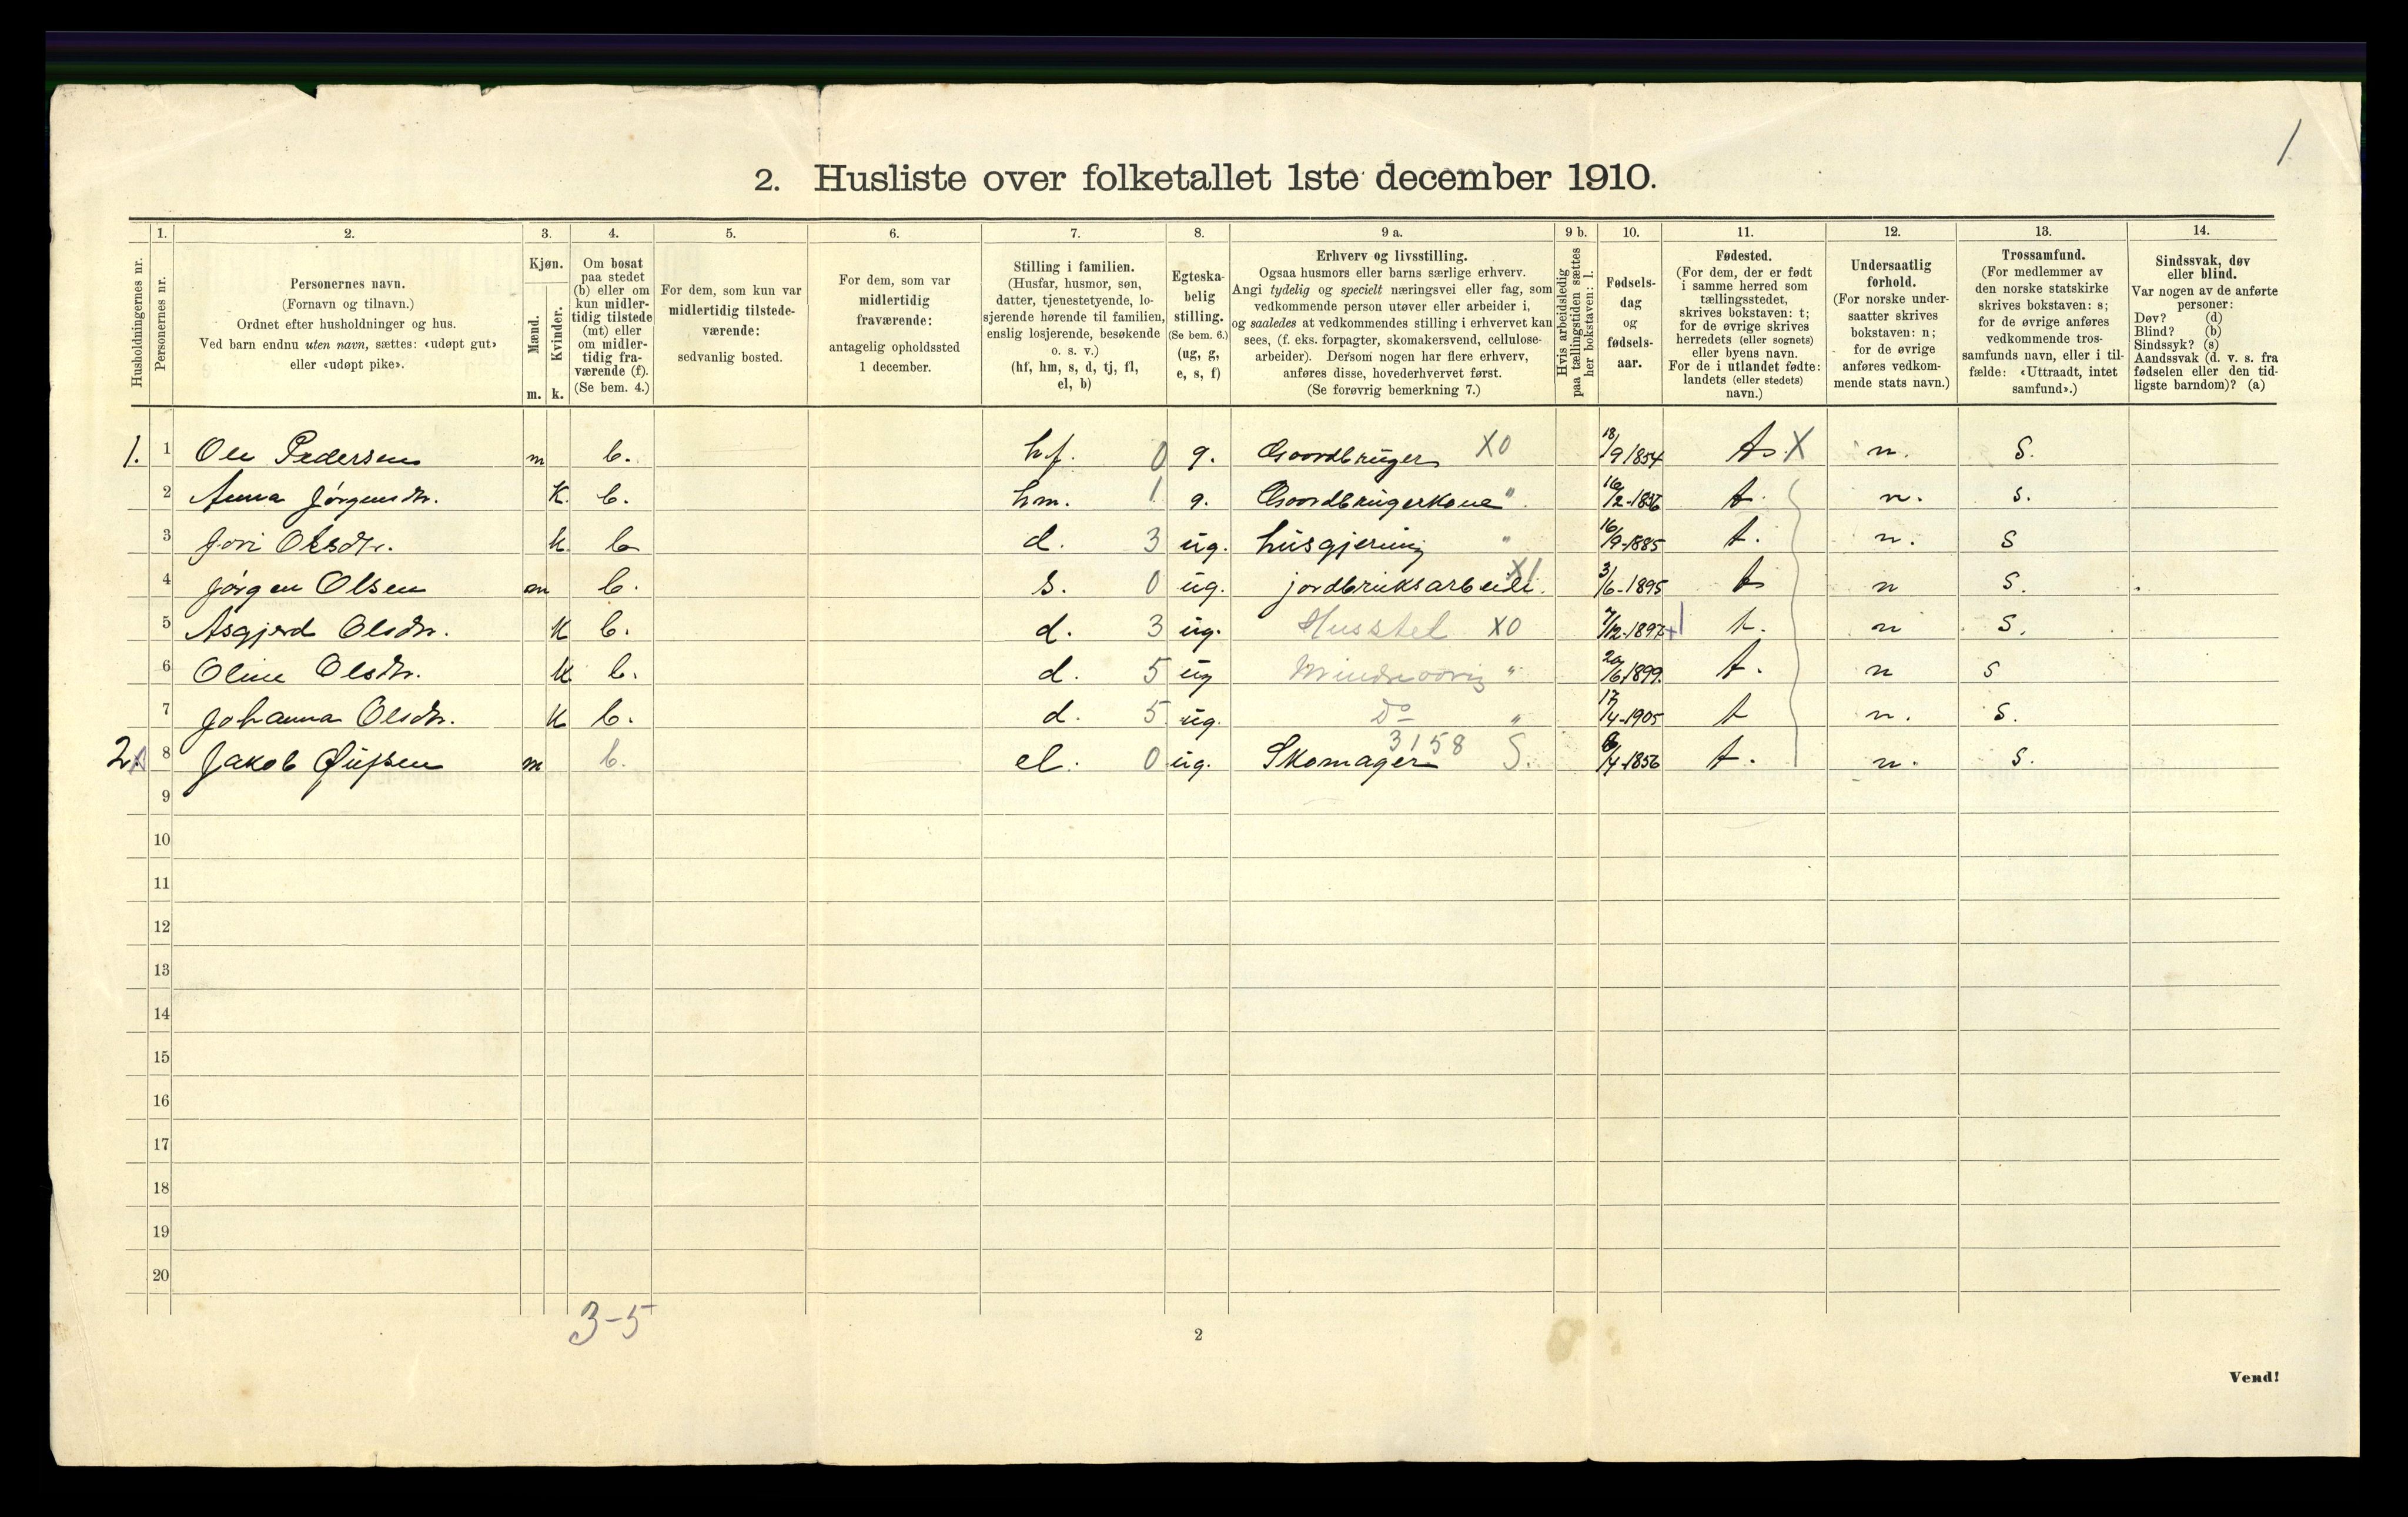 1
2. Husliste over folketallet 1ste december 1910.
1. 2. 3. 4. 5. 6. 7. 8. 9 a. 9 b. 10. 11. 12. 13. 14.
Husholdningernes nr.
Personernes nr.
Personernes navn.
(Fornavn og tilnavn.)
Ordnet efter husholdninger og hus.
Ved barn endnu uten navn, sættes: «udøpt gut»
eller «udøpt pike».
Kjøn.
Mænd.
Kvinder.
m. k.
Om bosat
paa stedet
(b) eller om
kun midler-
tidig tilstede
(mt) eller
om midler-
tidig fra-
værende (f).
(Se bem. 4.)
For dem, som kun var
midlertidig tilstede-
værende:
sedvanlig bosted.
For dem, som var
midlertidig
fraværende:
antagelig opholdssted
1 december.
Stilling i familien.
(Husfar, husmor, søn,
datter, tjenestetyende, lo-
sjerende hørende til familien,
enslig losjerende, besøkende
o. s. v.)
(hf, hm, s, d, tj, fl,
el, b)
Egteska-
belig
stilling.
(Se bem. 6.)
(ug, g,
e, s, f)
Erhverv og livsstilling.
Ogsaa husmors eller barns særlige erhverv.
Angi tydelig og specielt næringsvei eller fag, som
vedkommende person utøver eller arbeider i,
og saaledes at vedkommendes stilling i erhvervet kan
sees, (f. eks. forpagter, skomakersvend, cellulose-
arbeider). Dersom nogen har flere erhverv,
anføres disse, hovederhvervet først.
(Se forøvrig bemerkning 7.)
Hvis arbeidsledig
paa tællingstiden sættes
her bokstaven: l.
Fødsels-
dag
og
fødsels-
aar.
Fødested.
(For dem, der er født
i samme herred som
tællingsstedet,
skrives bokstaven: t;
for de øvrige skrives
herredets (eller sognets)
eller byens navn.
For de i utlandet fødte:
landets (eller stedets)
navn.)
Undersaatlig
forhold.
(For norske under-
saatter skrives
bokstaven: n;
for de øvrige
anføres vedkom-
mende stats navn.)
Trossamfund.
(For medlemmer av
den norske statskirke
skrives bokstaven: s;
for de øvrige anføres
vedkommende tros-
samfunds navn, eller i til-
fælde: «Uttraadt, intet
samfund».)
Sindssvak, døv
eller blind.
Var nogen av de anførte
personer:
Døv? (d)
Blind? (b)
Sindssyk? (s)
Aandssvak (d. v. s. fra
fødselen eller den tid-
ligste barndom)? (a)
1. 1 Ole Pedersen m b. hf. 0 g. Gaardbruger X0 18/9 1854 t X n. S.
2 Anna Jørgensdtr. K. b. hm. 1 g. Gaardbrugerkone " 16/2-1856 t. n. s.
3 Jori Olsdtr. k b d. 3 ug. husgjerning " 16/9-1885 t. n. S
4 Jørgen Olsen m b. s. 0 ug. jordbruksarbeide. X1 3/6-1895 t n S.
5 Asgjerd Olsdtr. K b. d. 3 ug. Husstel X0 7/12-1897 t. n S.
6 Oline Olsdtr. K b. d. 5 ug Mindreaarig " 20/6 1899. t. n s
7 Johanna Olsdtr. K b. d. 5 ug. Do " 17/4-1905 t n. S.
2. 8 Jakob m b. el. 0 ug. Skomager 3158 S. 6/4-1856 t. n. s.
9
10
11
12
13
14
15
16
17
18
19
20
3-5
2
Vend!